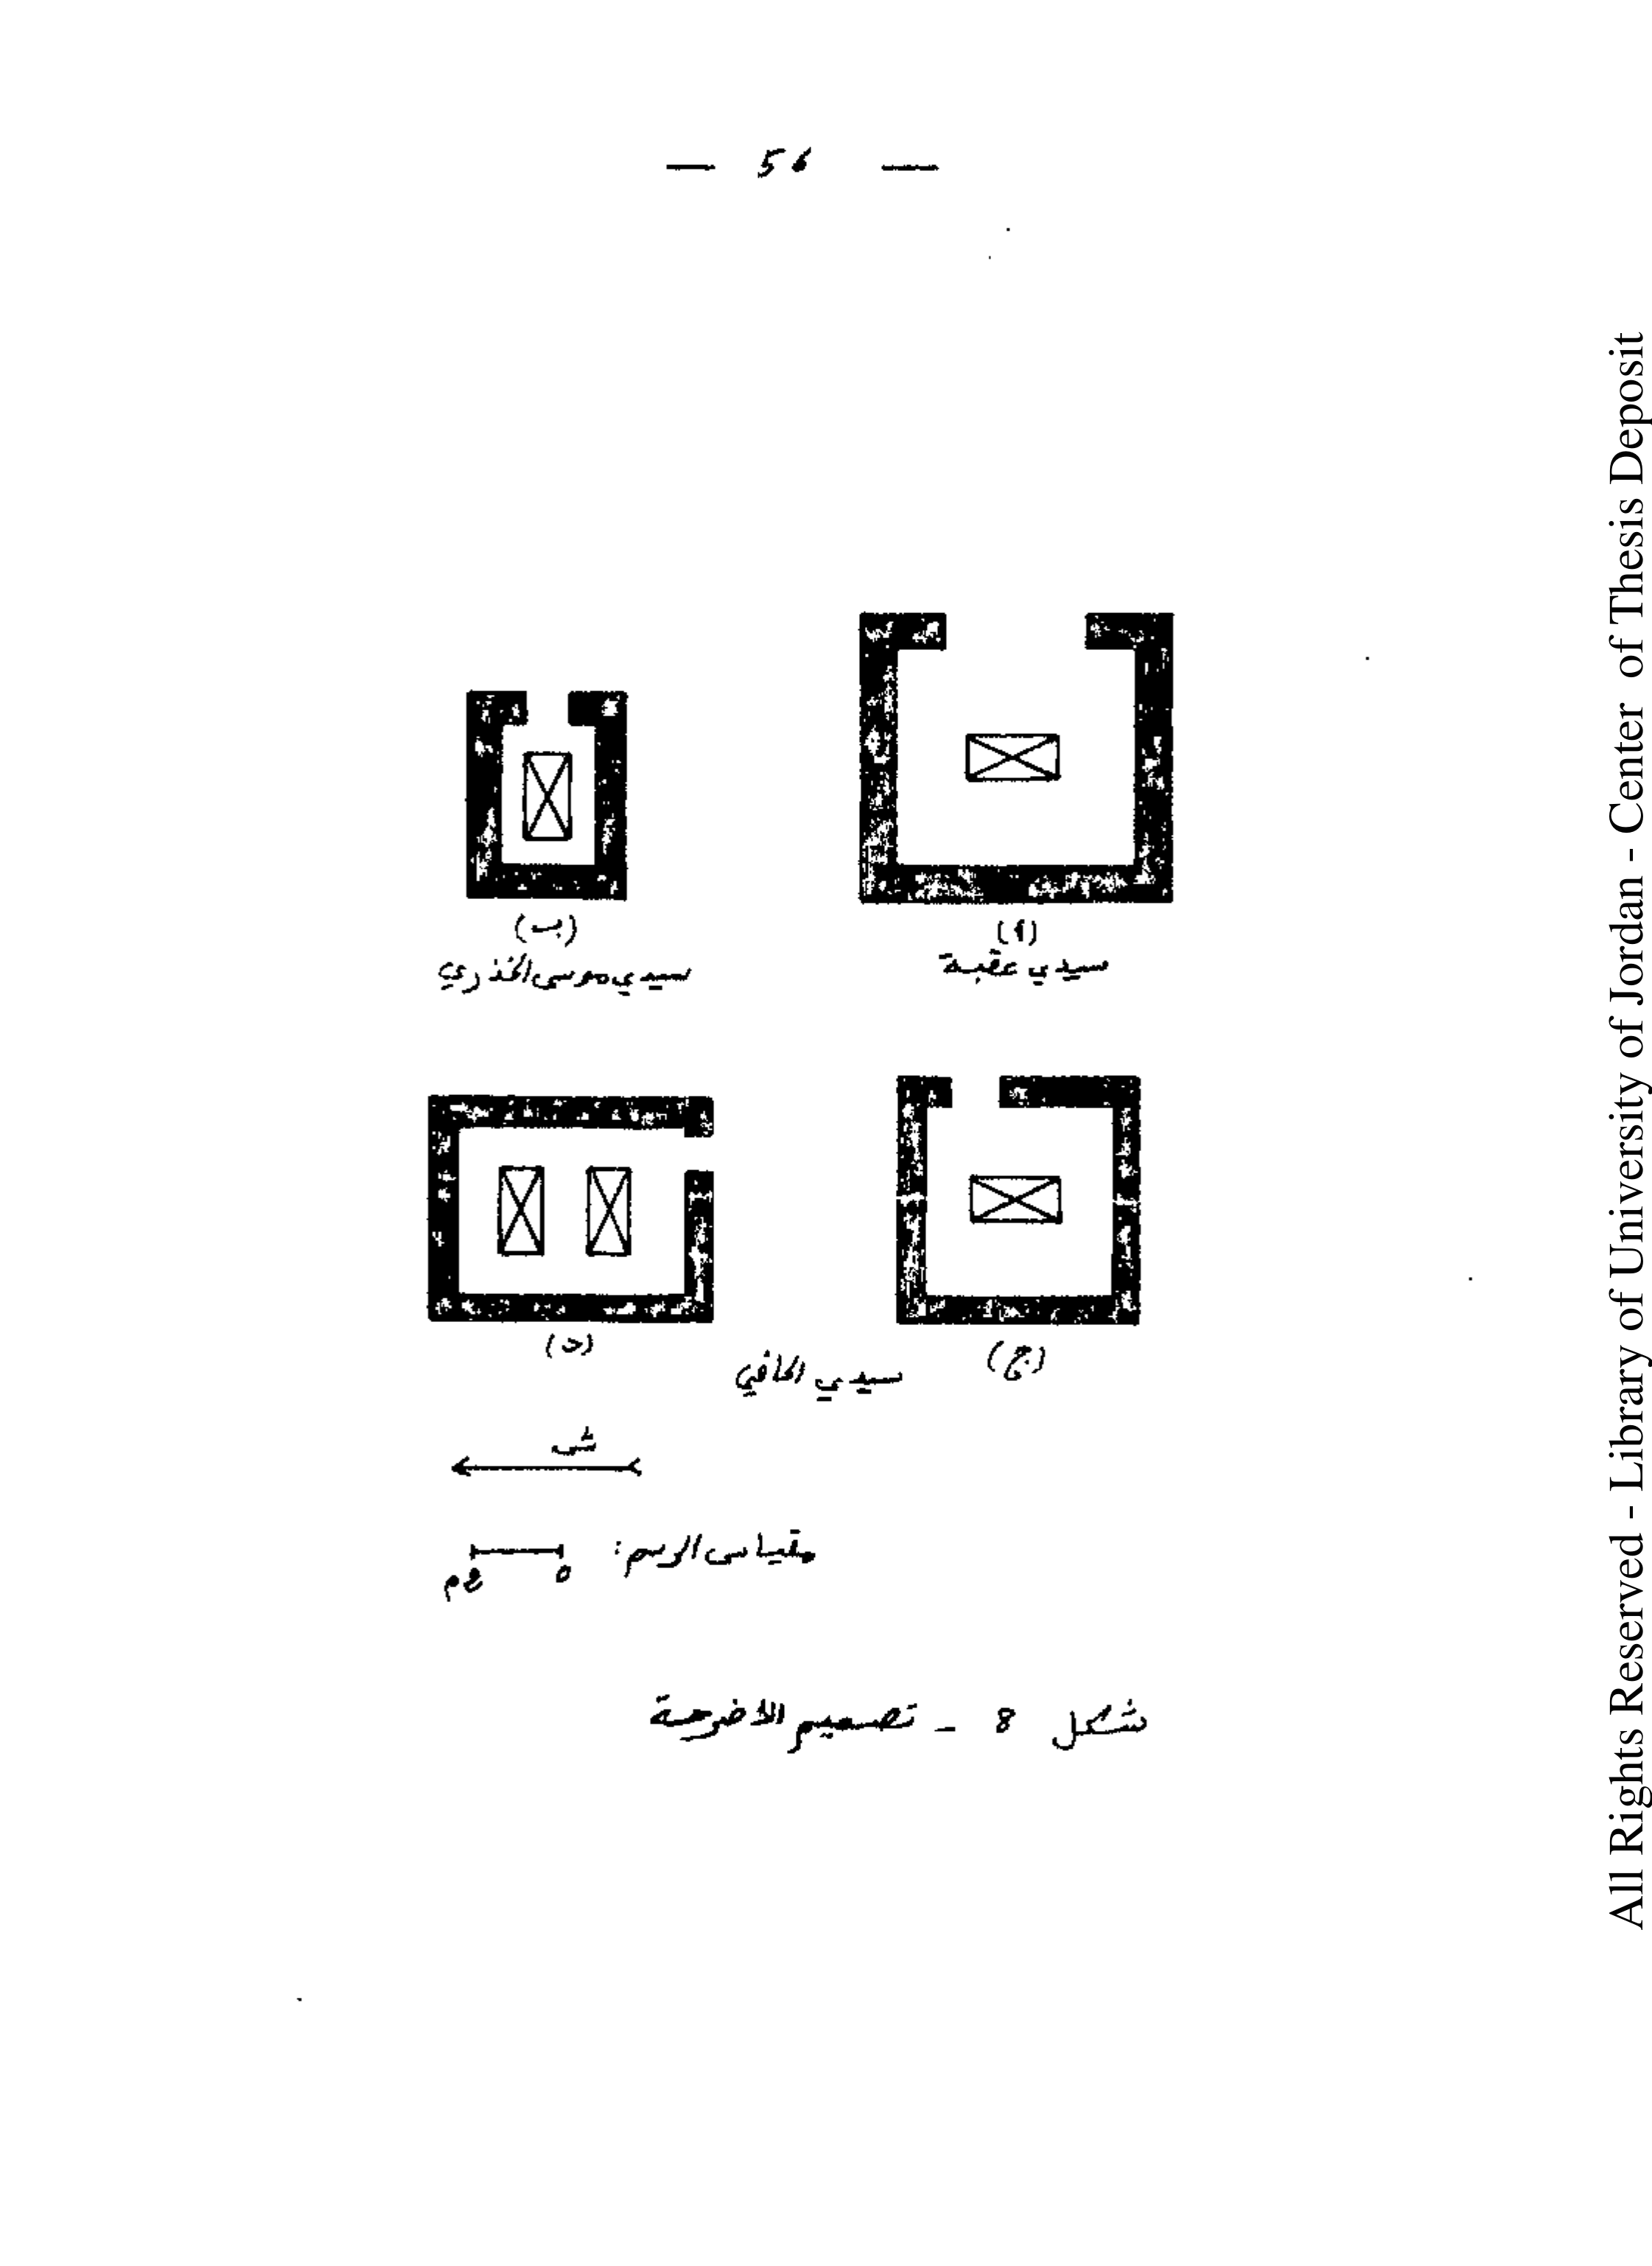 — 56 —
(أ)
سيدي عقبة
(ب)
سيدي موسى الخذري
(ج)
(د)
سيدي الحافي
ش
مقياس الرسم:
0
شكل 8 - تصميم الاضرحة
All Rights Reserved - Library of University of Jordan - Center of Thesis Deposit